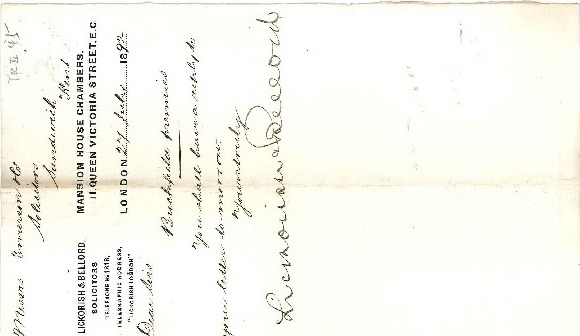 TRE 45
Messrs Emerson & Co
Solicitors
Sandwich
Kent
LICKORISH & BELLORD,
SOLICITORS
TELEPHONE No 1818.
TELEGRAPHIC ADDRESS,
"LICKORISH LONDON"
MANSION HOUSE CHAMBERS,
11, QUEEN VICTORIA STREET, E.C.
LONDON 27 July 189
Dear Sirs
premises
You shall have a reply to
your letter to morrow.
Yours truly
Lickorish & Bellord